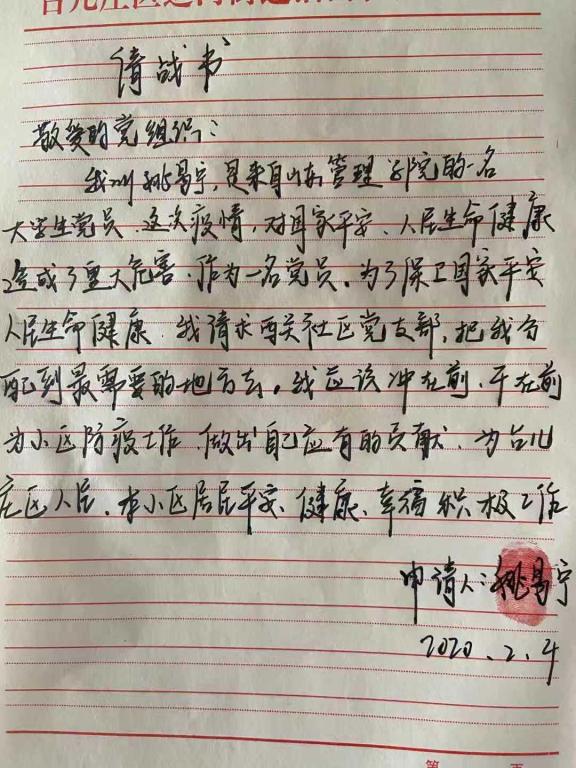 请战书
敬爱的党组织：
我叫姚易宁，是来自山东管理学院的一名
大学生党员．这次疫情，对国家平安、人民生命健康
造成了重大危害．作为一名党员．为了保卫国家平安
人民生命健康．我请求西关社区党支部，把我分
配到最需要的地方去。我应该冲在前，干在前
为小区防疫工作 做出自己应有的贡献．为台儿
庄区人民．本小区居民平安、健康、幸福积极工作
申请人：姚易宁
2020.2.4
第 页